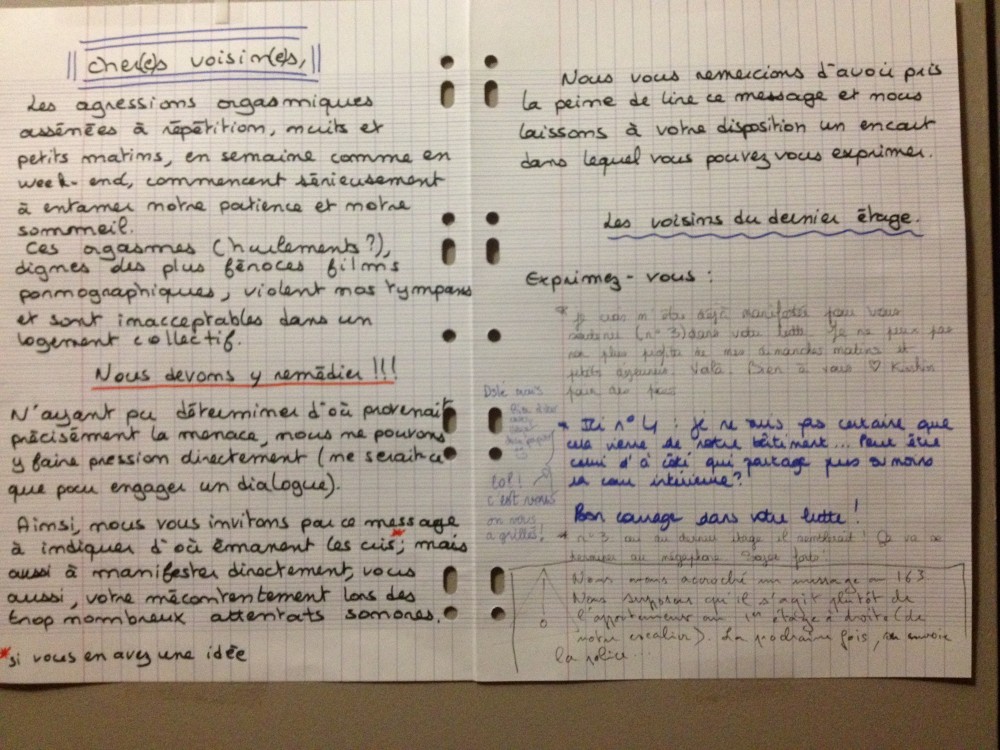 Cher(e)s voisin(e)s,
Les agressions orgasmiques
assénées à répétition, nuits et
petits matins, en semaine comme en
week-end, commencent sérieusement
à entamer notre patience et notre
sommeil.
Ces orgasmes (hurlements?),
dignes des plus féroces films
pornographiques, violent nos tympans
et sont inacceptables dans un
logement collectif.
Nous devons y remédier !!!
N'ayant pu déterminer d'où provenait
précisément la menace, nous ne pouvons
y faire pression directement (ne serait-ce
que pour engager un dialogue).
Ainsi, nous vous invitons par ce message
à indiquer d'où émanent les cris*; mais
aussi à manifester directement, vous
aussi, votre mécontentement lors des
trop nombreux attentats sonores.
*si vous en avez une idée
Nous vous remercions d'avoir pris
la peine de lire ce message et nous
laissons à votre disposition un encart
dans lequel vous pouvez vous exprimer.
Les voisins du dernier étage.
Exprimez-vous :
* je crois m'être déjà manifestée pour vous
soutenir (n°3) dans votre lutte. Je ne peux pas
non plus profiter de mes dimanches matins et
petits déjeuners. Voilà. Bien à vous ♡
Désolé mais
LOL!
c'est vous
on vous
a grillés!
* Ici n°4 : je ne suis pas certaine que
cela vienne de notre bâtiment... Peut être
celui d'à côté qui partage plus ou moins
la cour intérieure?
Bon courage dans votre lutte !
* n°3: au dernier étage il semblerait! Ça va se
terminer au mégaphone
Nous avons accroché un message au 163
Nous supposons qu'il s'agit plutôt de
l'appartement au 1er étage à droite (de
notre escalier). La prochaine fois, on envoie
la police...